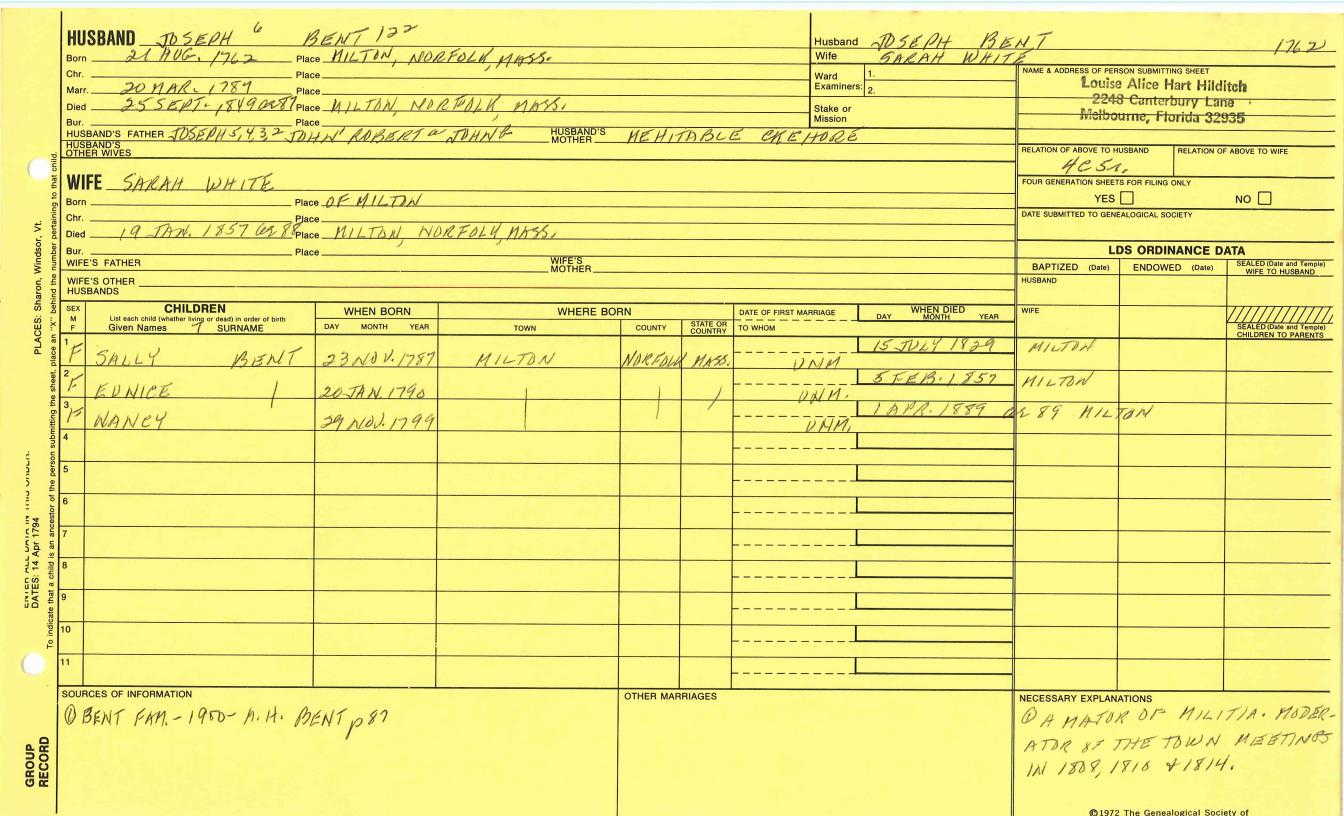 HUSBAND JOSEPH 6 BENT 122
Born 21 AUG. 1762 Place MILTON, NORFOLK, MASS.
Chr. Place
Marr. 20 MAR. 1789 Place
Died 25 SEPT. 1849 or 87 Place MILTON, NORFOLK, MASS.
Bur. Place
HUSBAND'S FATHER JOSEPH 5,4,3,2 JOHN' ROBERT a JOHN b HUSBAND'S MOTHER MEHITABLE CKEHORE
HUSBAND'S OTHER WIVES
Husband JOSEPH BENT 1762
Wife SARAH WHITE
Ward Examiners: 1.
2.
Stake or Mission
NAME & ADDRESS OF PERSON SUBMITTING SHEET
Louise Alice Hart Hilditch
2248 Canterbury Lane
Melbourne, Florida 32935
RELATION OF ABOVE TO HUSBAND RELATION OF ABOVE TO WIFE
4C5r.
FOUR GENERATION SHEETS FOR FILING ONLY
YES NO
DATE SUBMITTED TO GENEALOGICAL SOCIETY
WIFE SARAH WHITE
Born Place OF MILTON
Chr. Place
Died 19 JAN. 1857 or 88 Place MILTON, NORFOLK, MASS.
Bur. Place
WIFE'S FATHER WIFE'S MOTHER
WIFE'S OTHER HUSBANDS
LDS ORDINANCE DATA
BAPTIZED (Date) ENDOWED (Date) SEALED (Date and Temple) WIFE TO HUSBAND
HUSBAND
WIFE
SEALED (Date and Temple) CHILDREN TO PARENTS
SEX M F CHILDREN WHEN BORN WHERE BORN DATE OF FIRST MARRIAGE WHEN DIED
List each child (whether living or dead) in order of birth
Given Names SURNAME DAY MONTH YEAR TOWN COUNTY STATE OR COUNTRY TO WHOM DAY MONTH YEAR
1 F SALLY BENT 23 NOV. 1787 MILTON NORFOLK MASS. UNM 15 JULY 1829 MILTON
2 F EUNICE 20 JAN. 1790 UNM. 5 FEB. 1857 MILTON
3 F NANCY 29 NOV. 1799 UNM. 1 APR. 1889 or 89 MILTON
4
5
6
7
8
9
10
11
SOURCES OF INFORMATION
① BENT FAM. - 1900 - A.H. BENT p 87
OTHER MARRIAGES
NECESSARY EXPLANATIONS
① A MAJOR OF MILITIA. MODER-
ATOR OF THE TOWN MEETINGS
IN 1808, 1810 & 1814.
©1972 The Genealogical Society of
GROUP RECORD
ENTER ALL DATA IN THIS ORDER:
DATES: 14 Apr 1794
PLACES: Sharon, Windsor, Vt.
To indicate that a child is an ancestor of the person submitting the sheet, place an "X" behind the number pertaining to that child.